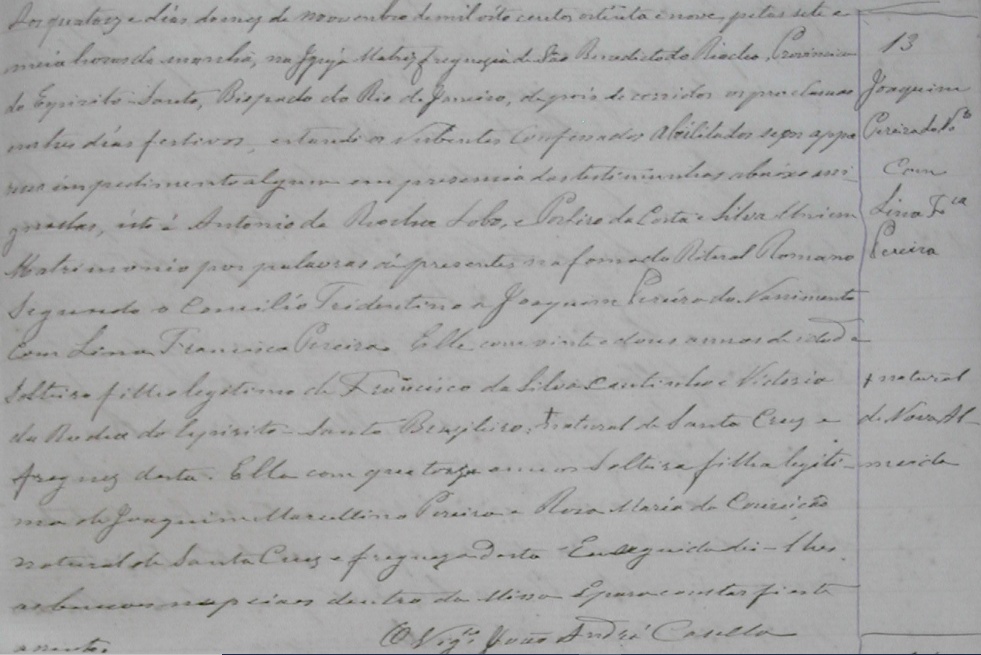 Aos quatorze dias do mez de novembro de mil oito centos oitenta e nove, pelas sete e
meia horas da manhã, na Igreja Matriz freguezia de São Benedicto do Riacho, Provincia
do Espirito-Santo, Bispado do Rio de Janeiro, depois de corridos os proclamas
em tres dias festivos, estando os Nubentes Confessados Abilitados sem appa
recer impedimento algum em presencia das testimunhas abaixo assi-
gnadas, isto é Antonio da Rocha Lobo, e Porfiro da Costa e Silva Uniem
Matrimonio por palavras de presentes na foma do Ritual Romano
Segundo o Concilio Tridentino a Joaquim Pereira do Nascimento
Com Lina Francisca Pereira. Elle com vinte e dous annos de idade
Solteiro filho legitimo de Francisco da Silva Coutinho e Victoria
da Rocha do Espirito-Santo Brazileiro, + natural de Santa Cruz e
freguez desta. Ella com quatorze annos Solteira filha legiti-
ma de Joaquim Marcellino Pereira e Rosa Maria da Conceição
natural de Santa Cruz e fregueza desta Em seguida dei-lhes
as bencoes nupciaes dentro da Missa E para constar fiz este
assento.
O Vigº João André Casella
13
Joaquim
Pereira do Nto
Com
Lina Fca
Pereira
+ natural
de Nova Al-
meida